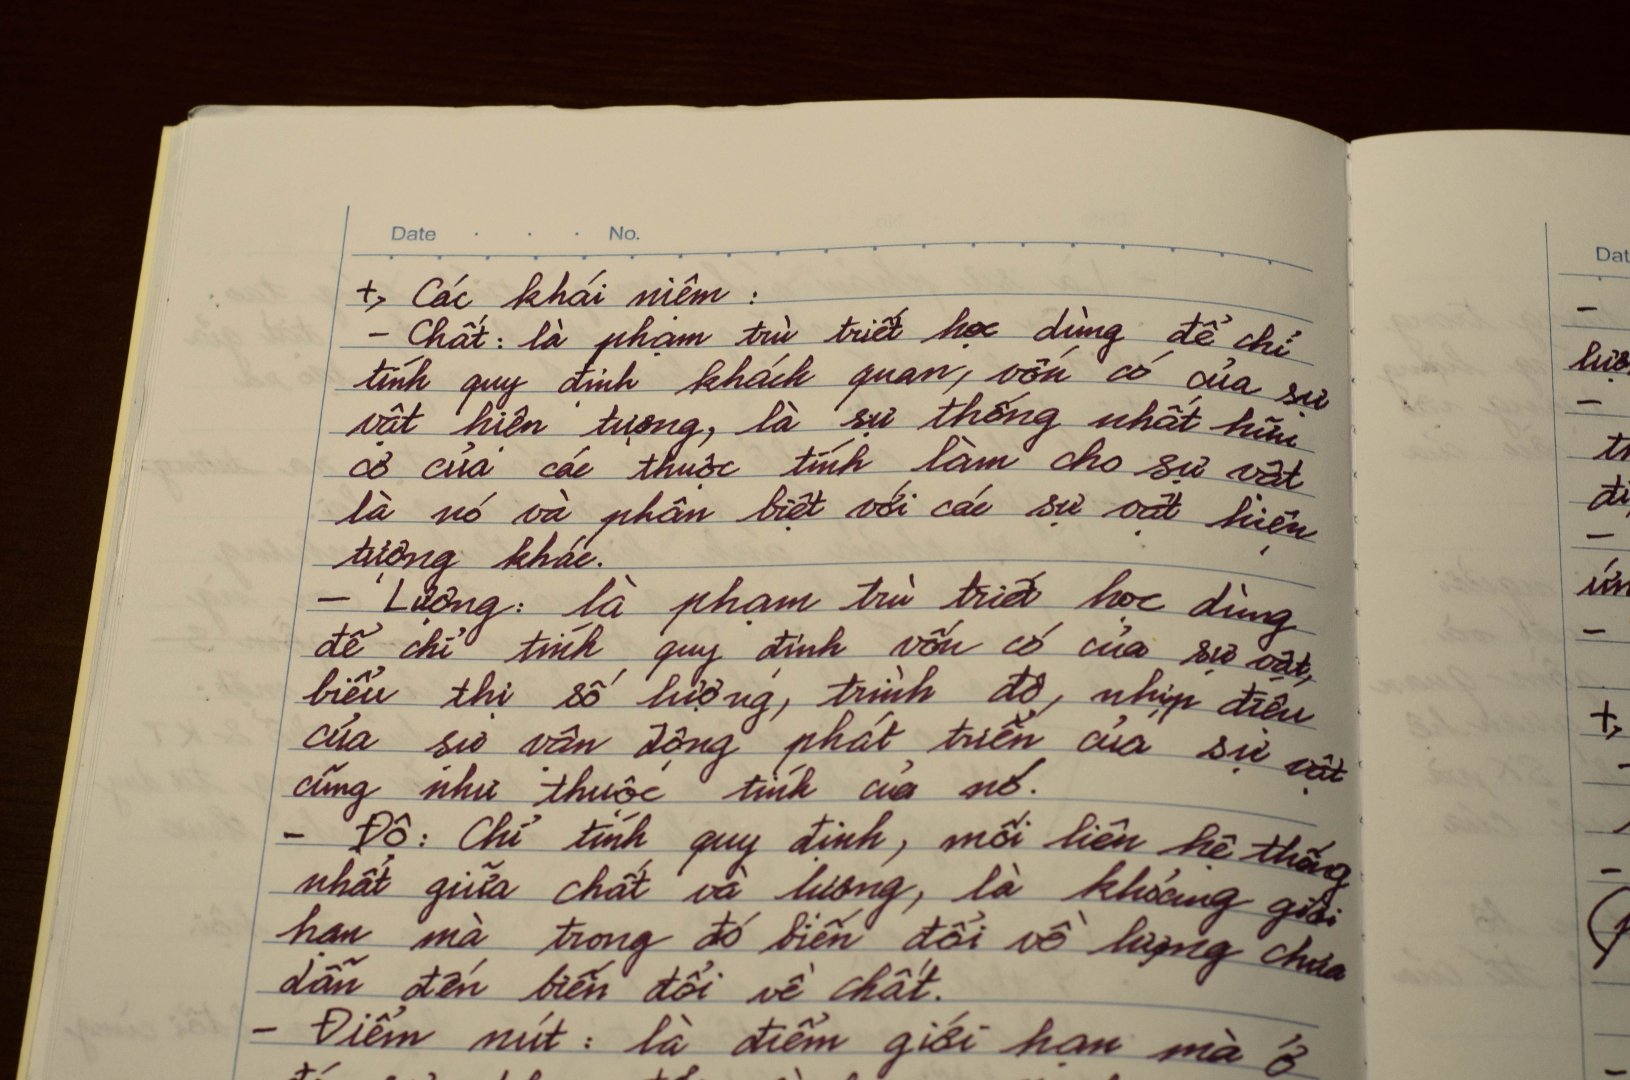 Date No.
+, Các khái niệm :
- Chất: là phạm trù triết học dùng để chỉ
tính quy định khách quan, vốn có của sự
vật hiện tượng, là sự thống nhất hữu
cơ của các thuộc tính làm cho sự vật
là nó và phân biệt với các sự vật hiện
tượng khác.
- Lượng: là phạm trù triết học dùng
để chỉ tính quy định vốn có của sự vật,
biểu thị số lượng, trình độ, nhịp điệu
của sự vận động phát triển của sự vật
cũng như thuộc tính của nó.
- Độ: Chỉ tính quy định, mối liên hệ thống
nhất giữa chất và lượng, là khoảng giới
hạn mà trong đó biến đổi về lượng chưa
dẫn đến biến đổi về chất.
- Điểm nút : là điểm giới hạn mà ở